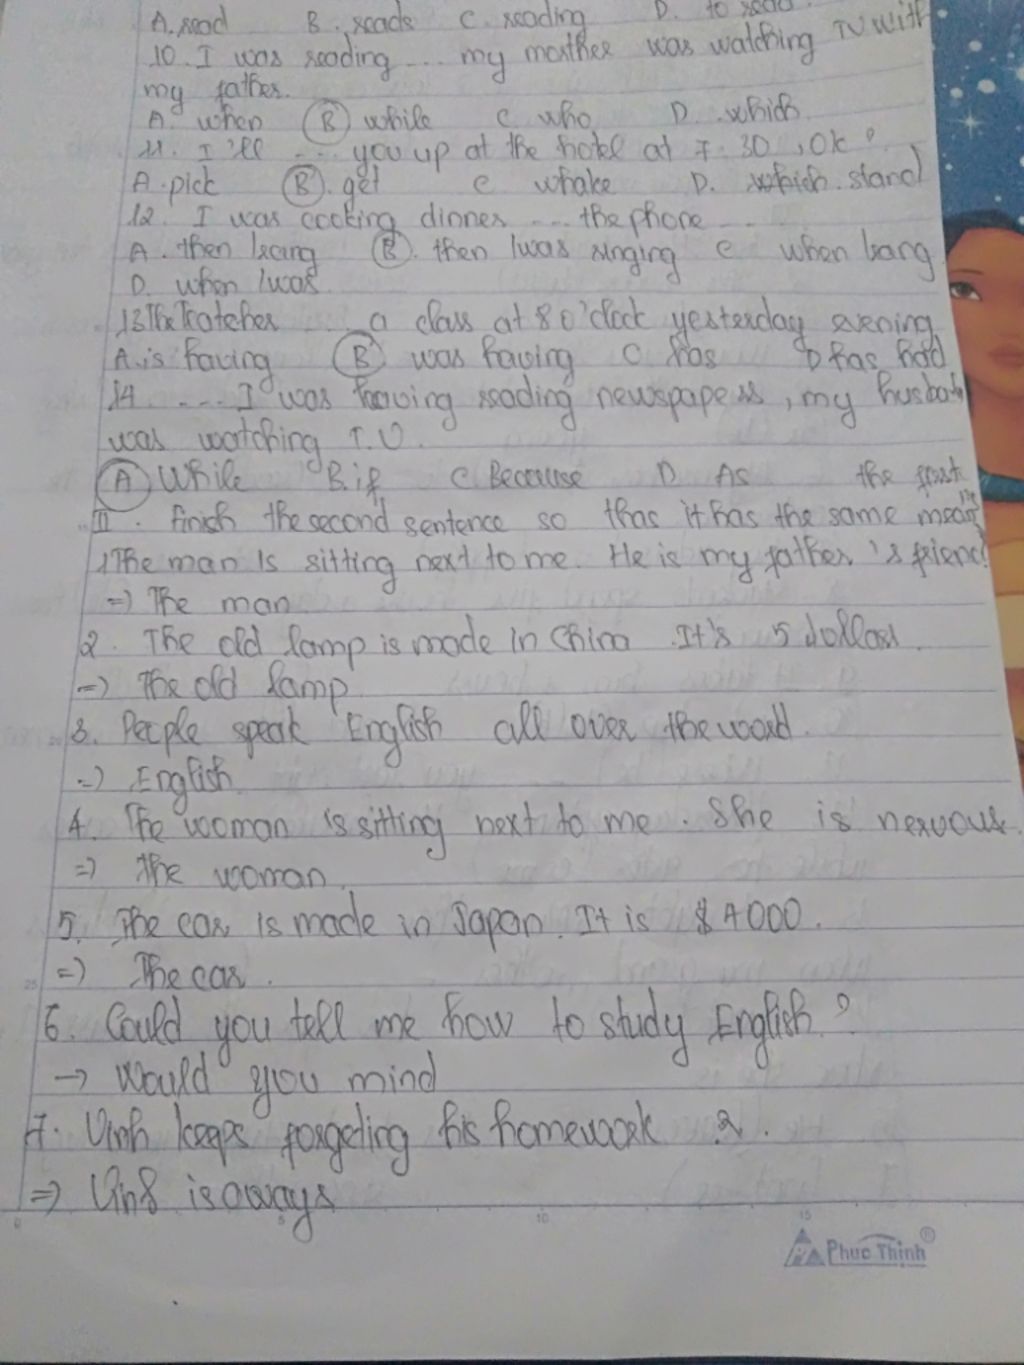 A. read B. reads C. reading D. to read.
10. I was reading .... my morther was watching TV with
my father.
A. when B while C who D. which
11. I'll .... you up at the hotel at 7.30, Ok?
A. pick B. get C whake D. which stand
12. I was cooking dinner .... the phone ...
A. then rang B. then /was ringing C when rang
D. when /was
13. The Teatcher ..... a class at 8 o'clock yesterday evening
A. is having B was having C has D has had
14 .... I was having reading newspapers, my husban
was watching T.V.
A While B. if C Because D As the first
II. finish the second sentence so that it has the same mean
1. The man is sitting next to me. He is my father's friend
=) The man
2. The old lamp is made in China. It's 5 dollars.
=) The old lamp
3. People speak English all over the word.
=) English
4. The woman is sitting next to me. She is nervous.
=) the woman.
5. The car is made in Japan. It is $ 4000.
=) The car.
6. Could you tell me how to study English?
-> Would you mind
7. Vinh keeps forgeting his homework 2.
=) Vinh is aways
Phuc Thinh®